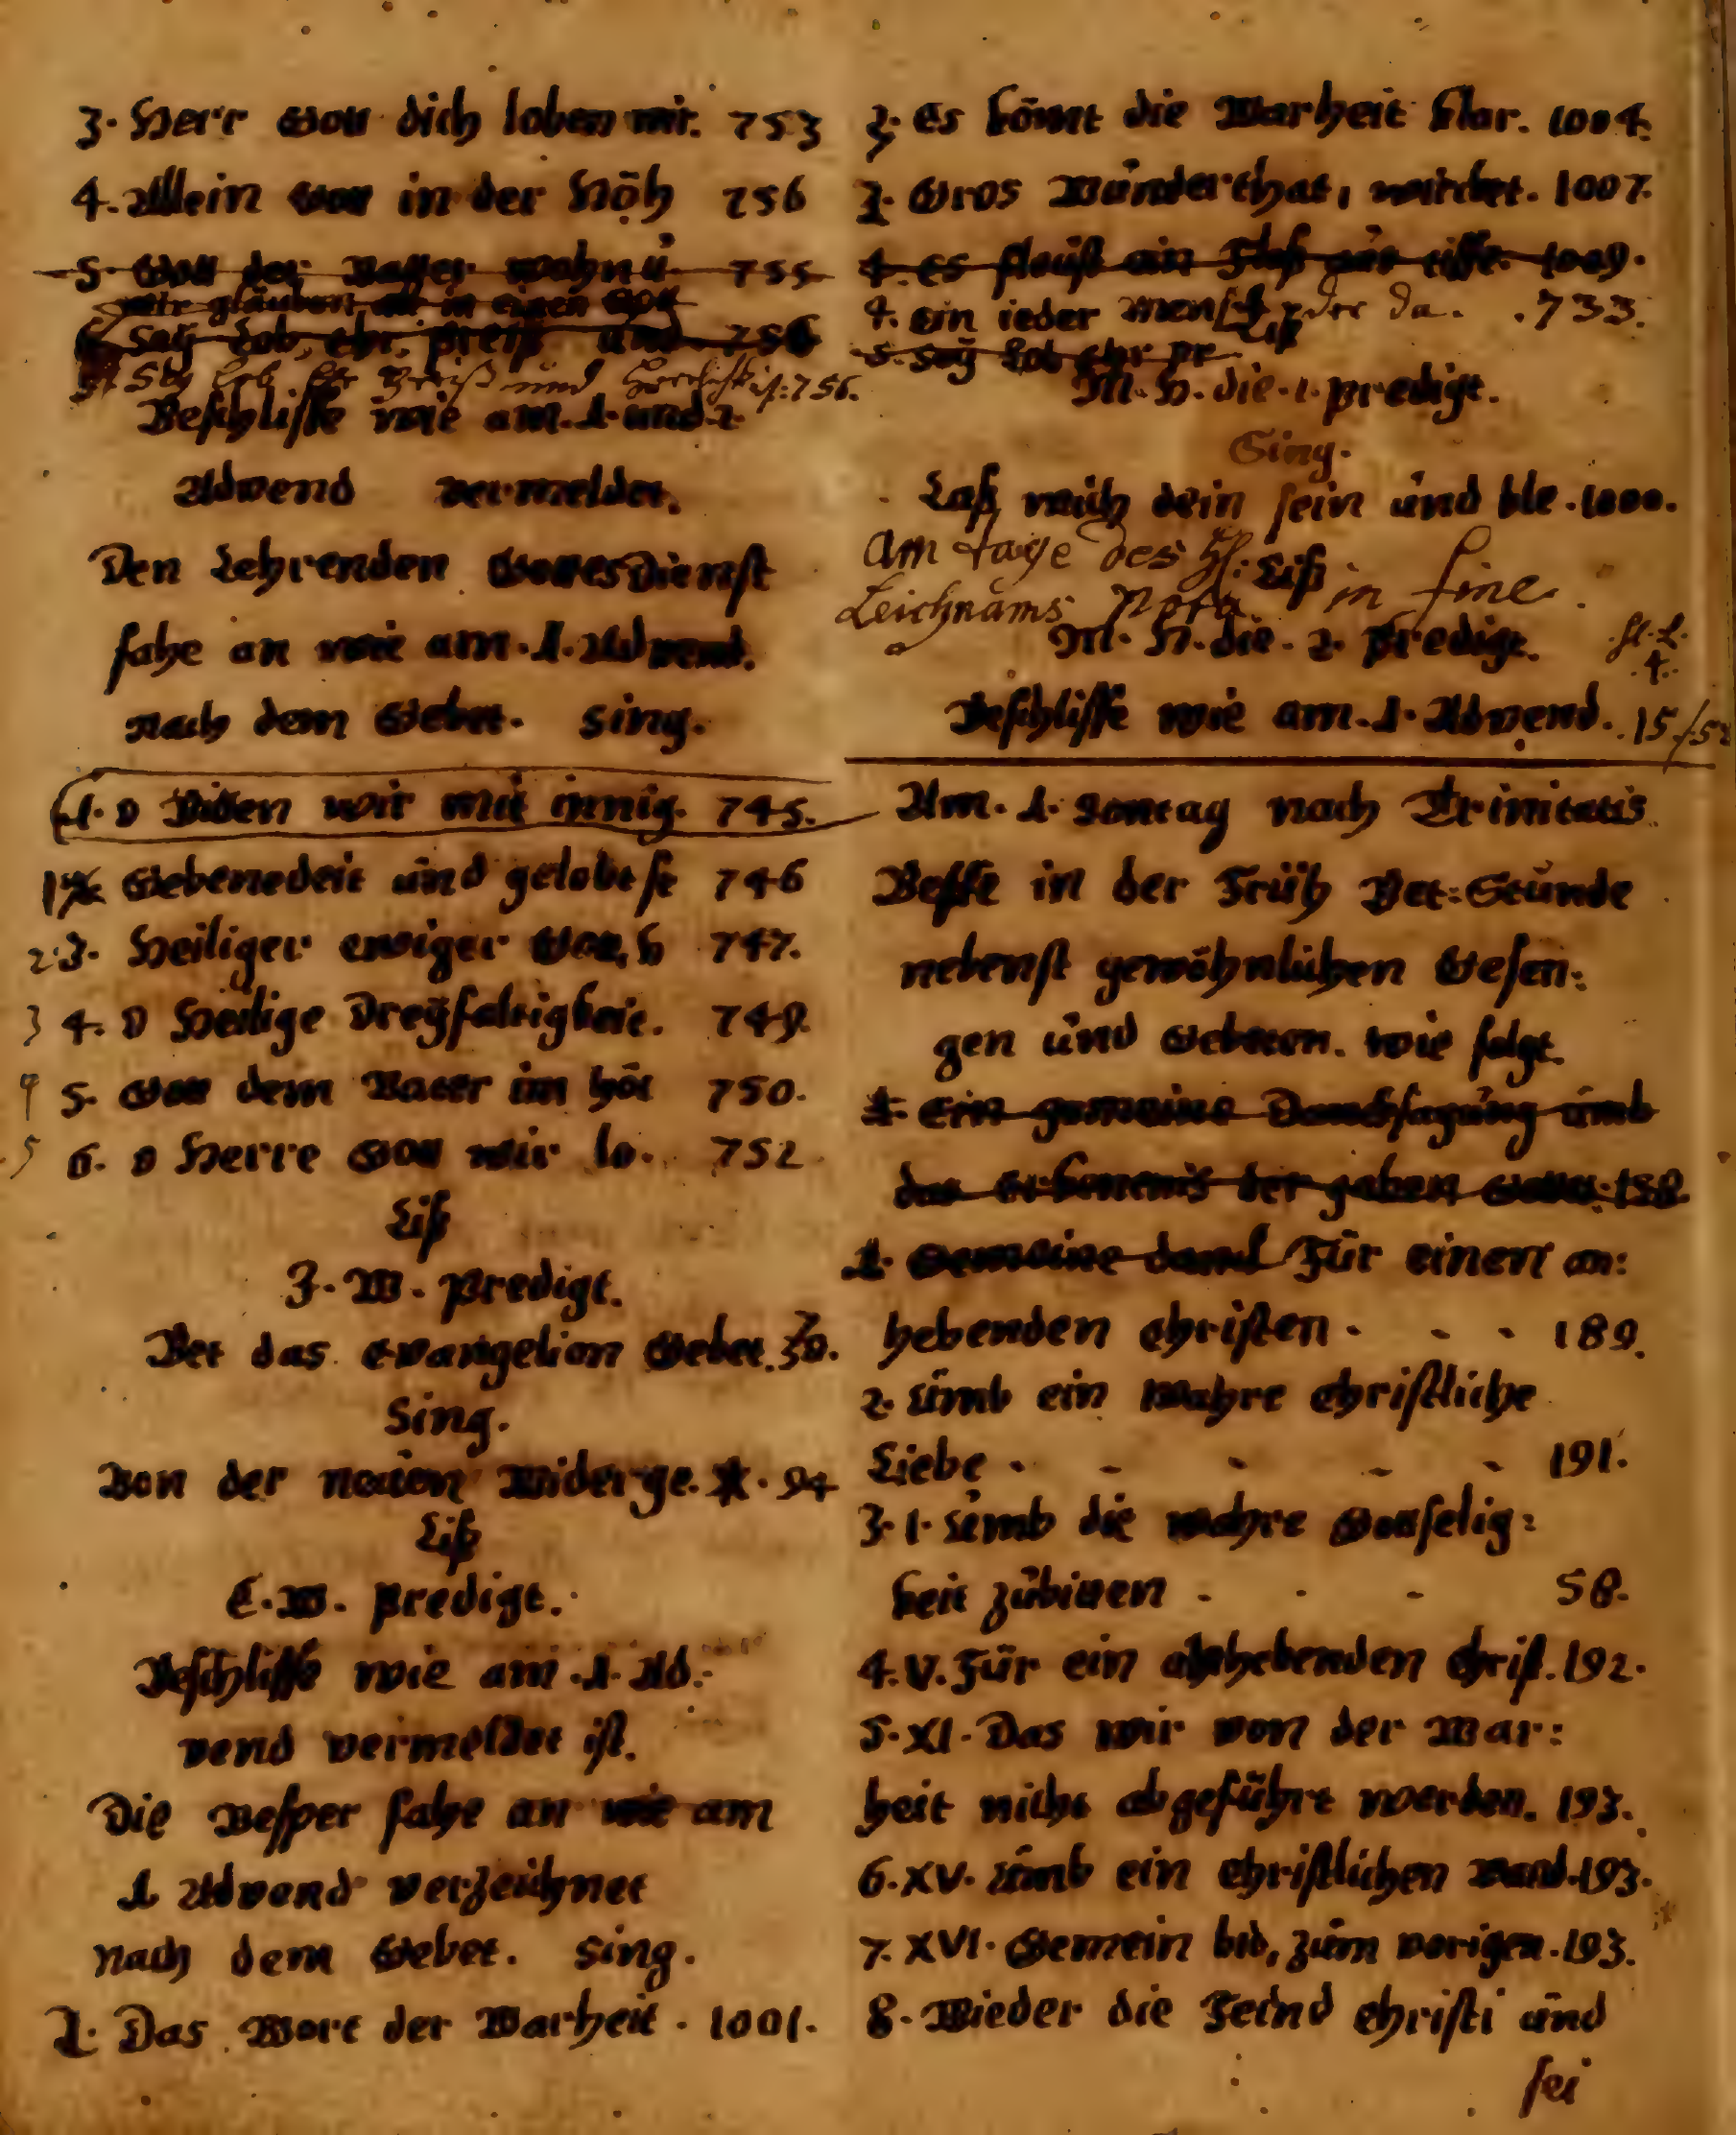 3. Herr Gott dich loben wir. 753
4. Allein Gott in der Höh 756
5. Gott der Vatter wohn ů. 755
wir glauben all in einen Gott
6. Sey Lob, ehr, preiß und 756
5. Sey Lob Ehr Preiß und Herrlichk ist: 756.
Beschlisse wie am. 1. und 2.
Advend vermeldet.
Den Lehrenden GottesDienst
fahe an wie am. 1. Advend.
nach dem Gebet. Sing.
1. O Bitten wir mit innig. 745.
1 2. Gebenedeit und gelobt se 746
2. 3. Heiliger ewiger Gott, h 747.
3 4. O Heilige Dreyfaltigkeit. 749.
4 5. Gott dem Vater im höc 750.
5 6. O Herre Gott wir lo. 752
Liß
Z. W. Predigt.
Bet das Evangelion Gebet.
Sing.
Von der neuen Widerge. *. 94
Liß
C. W. Predigt.
Beschlisse wie am .1. Ad.
vend vermeldet ist.
Die Vesper fahe an wie am
1 Advend verzeichnet
nach dem Gebet. Sing.
1. Das Wort der Warheit. 1001.
2. Es kömt die Warheit klar. 1004.
3. Gros Wunderthat, wircket. 1007.
4. Es fleust ein 1009.
4. ein ieder Mensch der da. 733.
5. Sey Lob Ehr pr
Liß
M. H. die. 1. Predigt.
Sing.
Laß mich dein sein und ble. 1000.
Am tage des Hl: Liß in fine
Leichnams Nota
M. H. die. 2. Predigt.
Beschlisse wie am. 1. Advend.
Am. 1. Sontag nach Trinitatis
Besse in der Früh Bet=Stunde
nebenst gewöhnlichen Gesen=
gen und Gebeten. wie folgt.
1. Ein gemeine Dancksagung umb
das erkentnis der gaben Gottes. 158
1. Gemeine danck Für einen an=
hebenden Christen - - - 189.
2. Umb ein Wahre Christliche
Liebe - - - - - 191.
3. 1. Umb die wahre Gottselig=
keit zu bitten - - - 58.
4. V. Für ein anhebenden Christ. 192.
5. XI. Das wir von der War=
heit nicht abgeführt werden. 193.
6. XV. Umb ein Christlichen wand. 193.
7. XVI. Gemein bid, zum vorigen. 193.
8. Wieder die Feind Christi und
sei